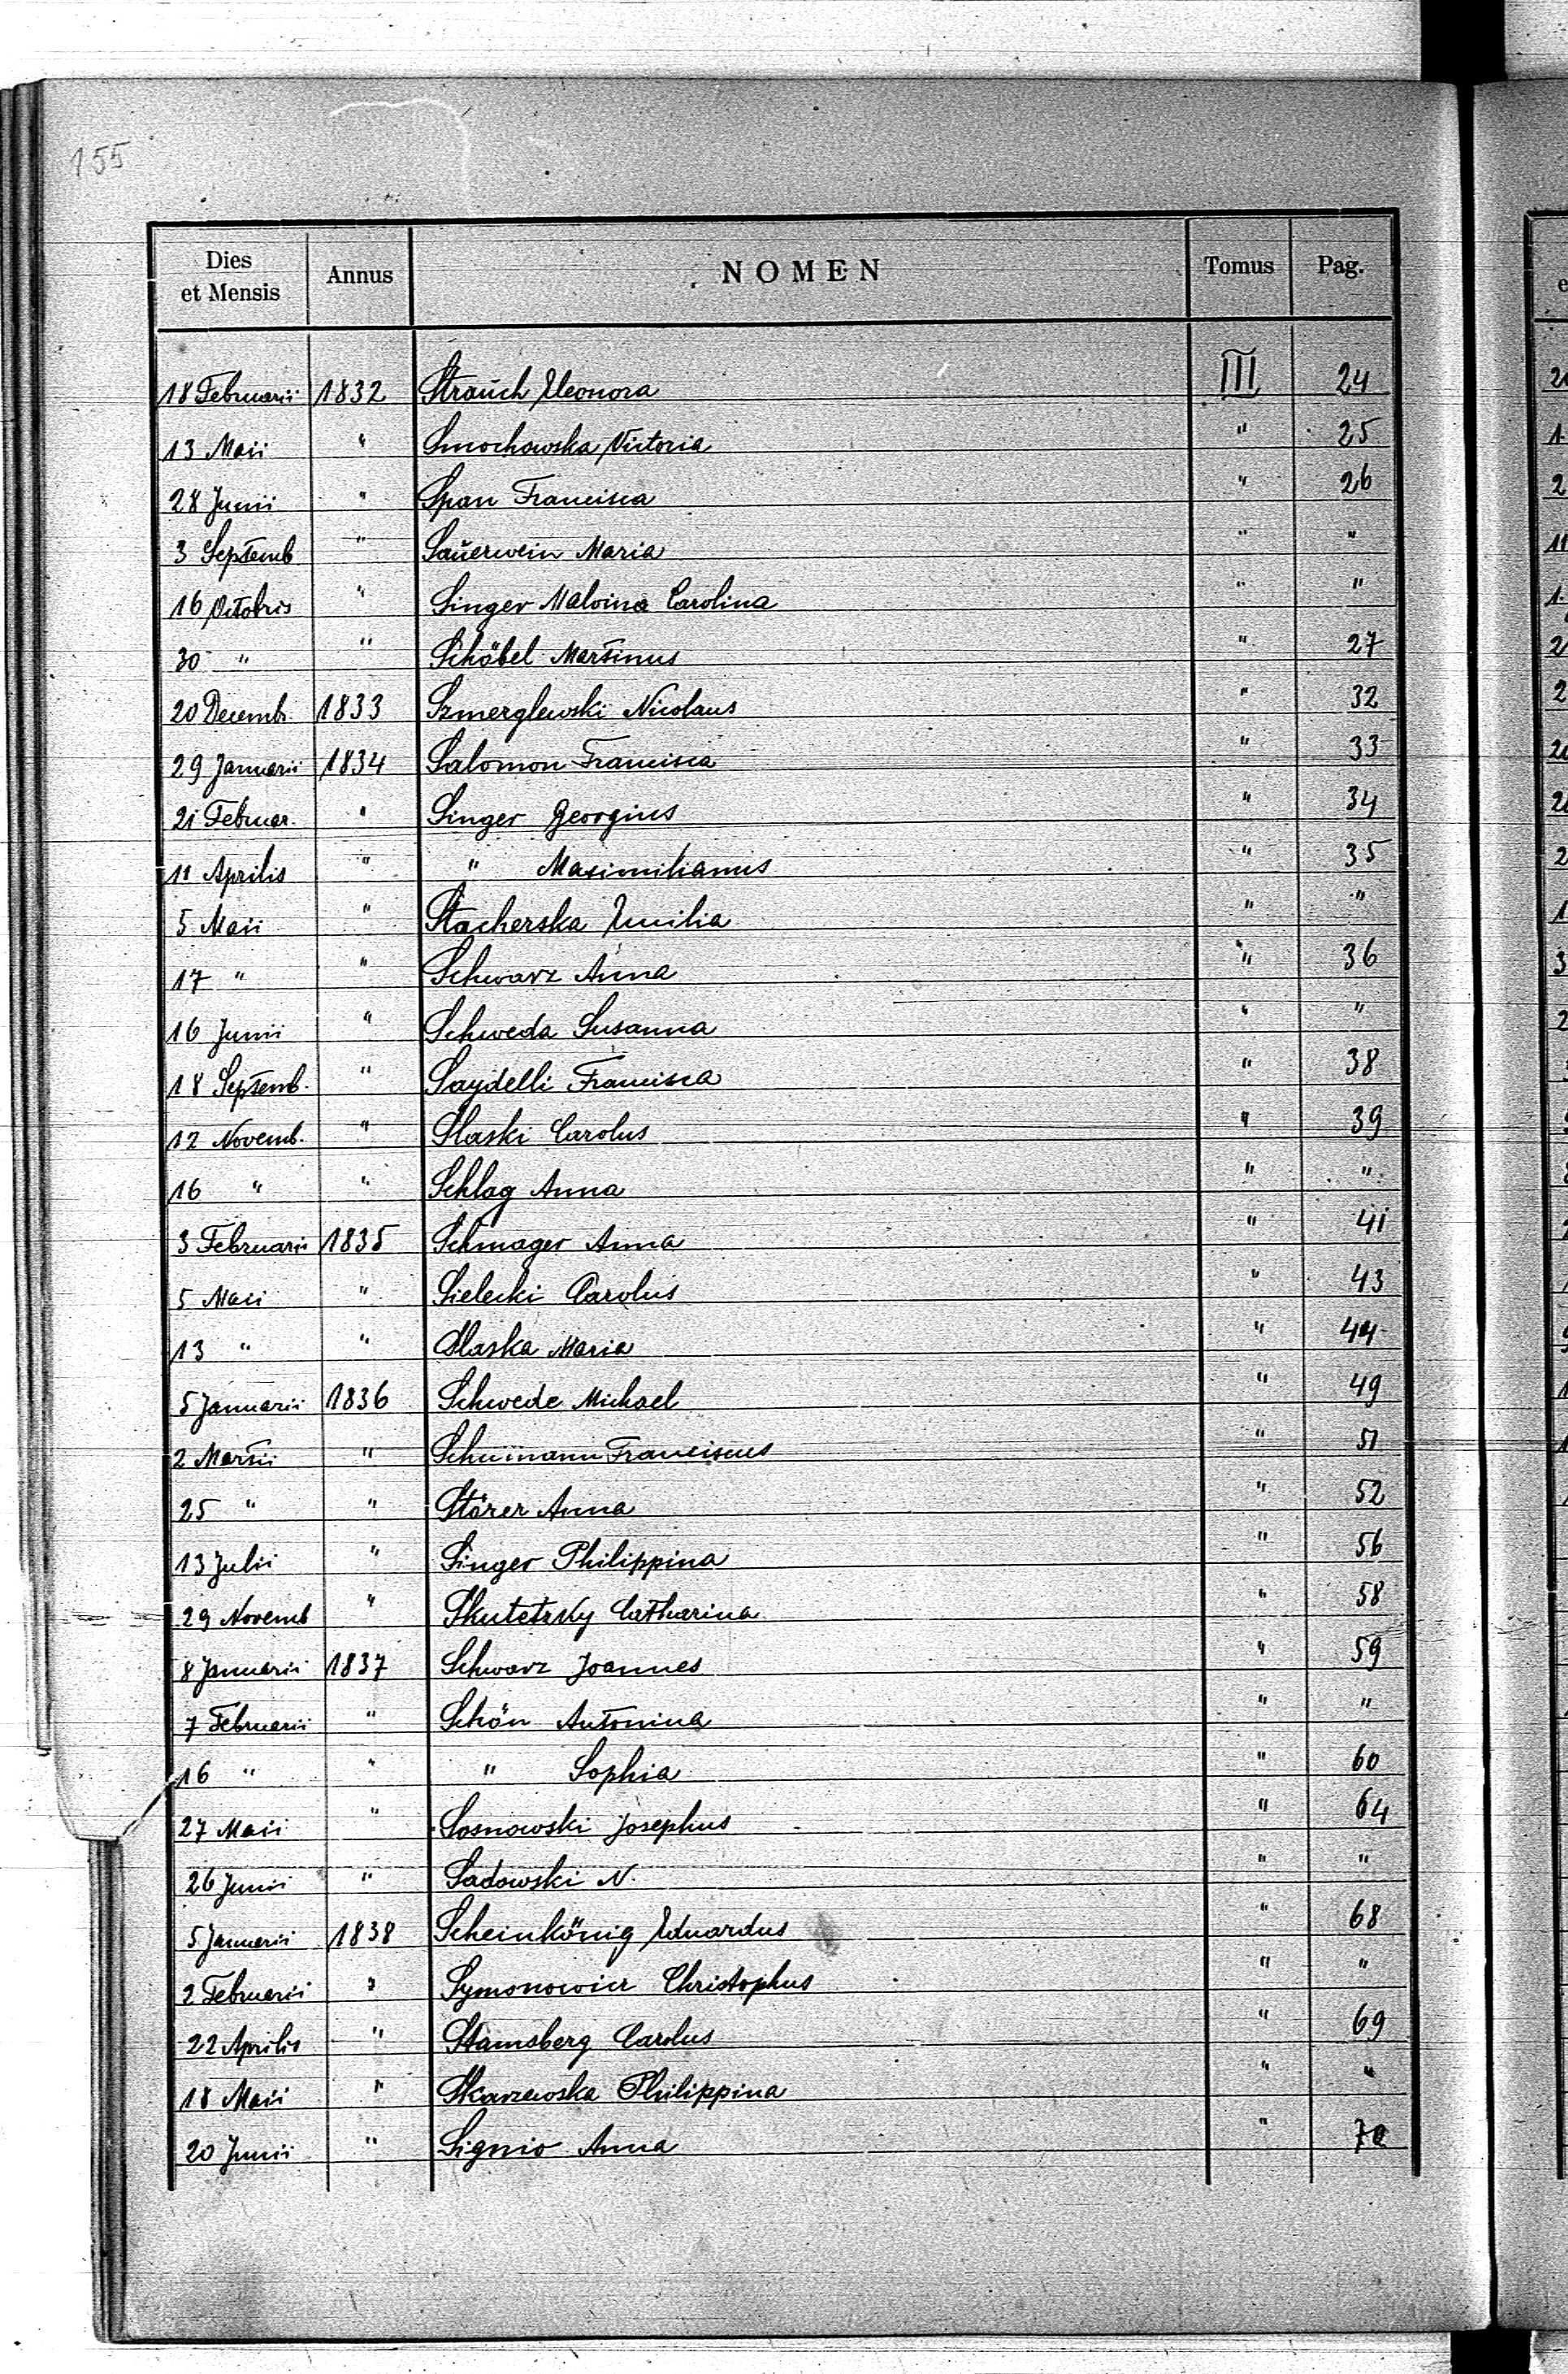 155
Dies et Mensis Annus NOMEN Tomus Pag.
18 Februarii 1832 Strauch Eleonora III 24
13 Maii " Smochowska Victoria " 25
28 Junii " Span Francisca " 26
3 Septemb " Sauerwein Maria " "
16 Octobris " Singer Malvina Carolina " "
30 " " Schöbel Martinus " 27
20 Decemb. 1833 Szmerglewski Nicolaus " 32
29 Januarii 1834 Salomon Francisca " 33
21 Februar. " Singer Georgius " 34
11 Aprilis " " Maximilianus " 35
5 Maii " Stacherska Emilia " "
17 " " Schwarz Anna " 36
16 Junii " Schweda Susanna " "
18 Septemb. " Saydelli Francisca " 38
12 Novemb. " Slaski Carolus " 39
16 " " Schlag Anna " "
3 Februarii 1835 Schmager Anna " 41
5 Maii " Sielecki Carolus " 43
13 " " Slaska Maria " 44
5 Januarii 1836 Schwede Michael " 49
2 Martii " Schumann Franciscus " 51
25 " " Störer Anna " 52
13 Julii " Singer Philippina " 56
29 Novemb " Skutetzky Catharina " 58
8 Januarii 1837 Schwarz Joannes " 59
7 Februarii " Schön Antonina " "
16 " " " Sophia " 60
27 Maii " Sosnowski Josephus " 64
26 Junii " Sadowski N. " "
5 Januarii 1838 Scheinkönig Eduardus " 68
2 Februarii " Symonowicz Christophus " "
22 Aprilis " Stamsberg Carolus " 69
18 Maii " Skarzewska Philippina " "
20 Junii " Signio Anna " 70